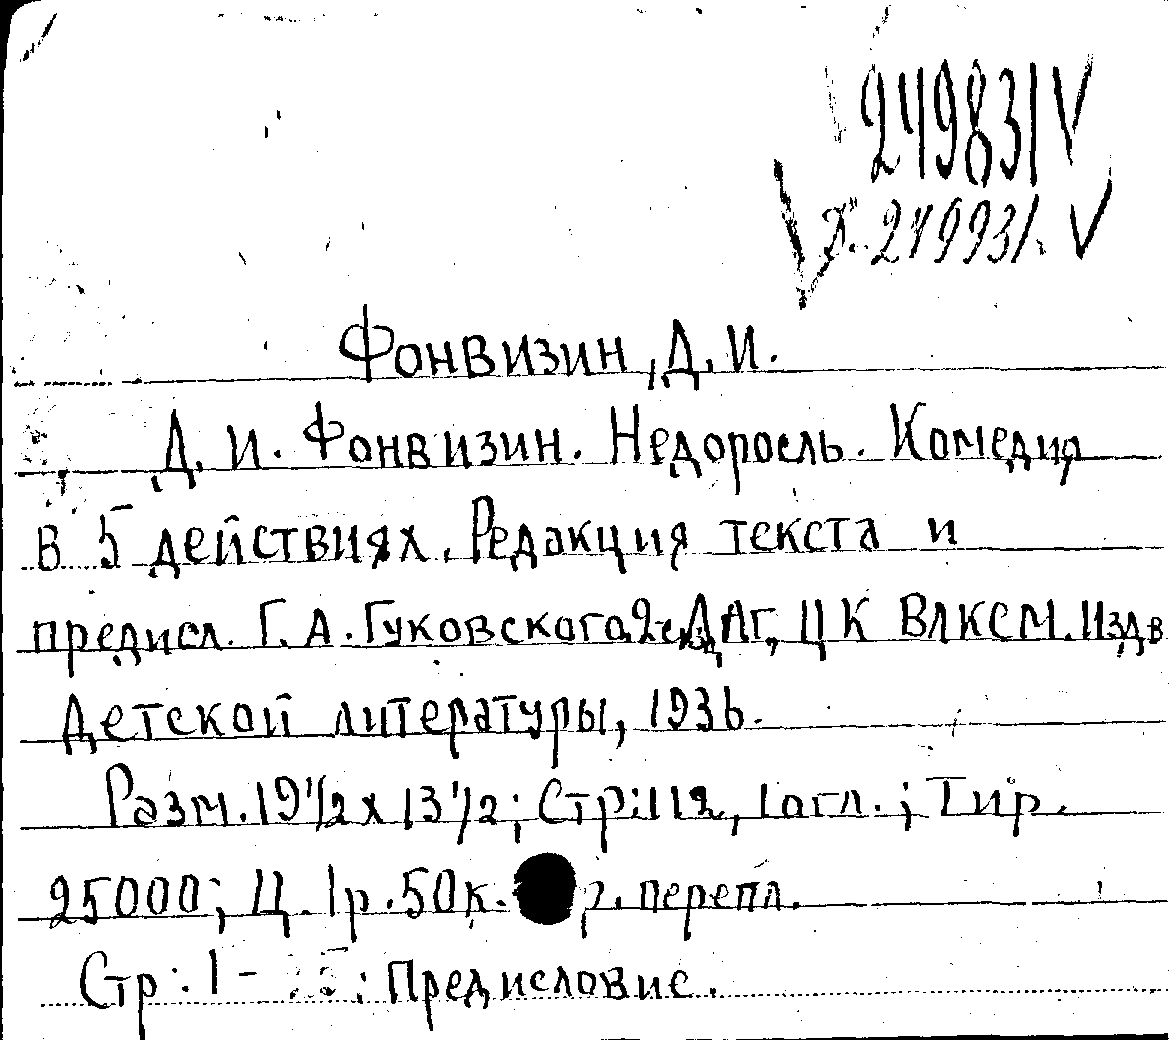 249831 V
249931. V
Фонвизин, Д. И.
Д. И. Фонвизин. Недоросль. Комедия
в 5 действиях. Редакция текста и
предисл. Г. А. Гуковского. 2е ЦК ВЛКСМ. Изд в
Детской литературы, 1936.
Разм. 19 1/2 x 13 1/2; Стр: 112, 1 огл.; Тир.
25000; Ц. 1р. 50к. перепл.
Стр: 1 - : Предисловие.